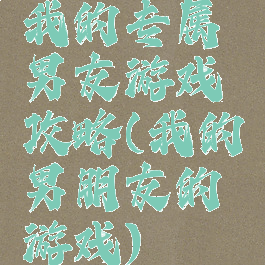 我的专属
男友游戏
攻略(我的
男朋友的
游戏)